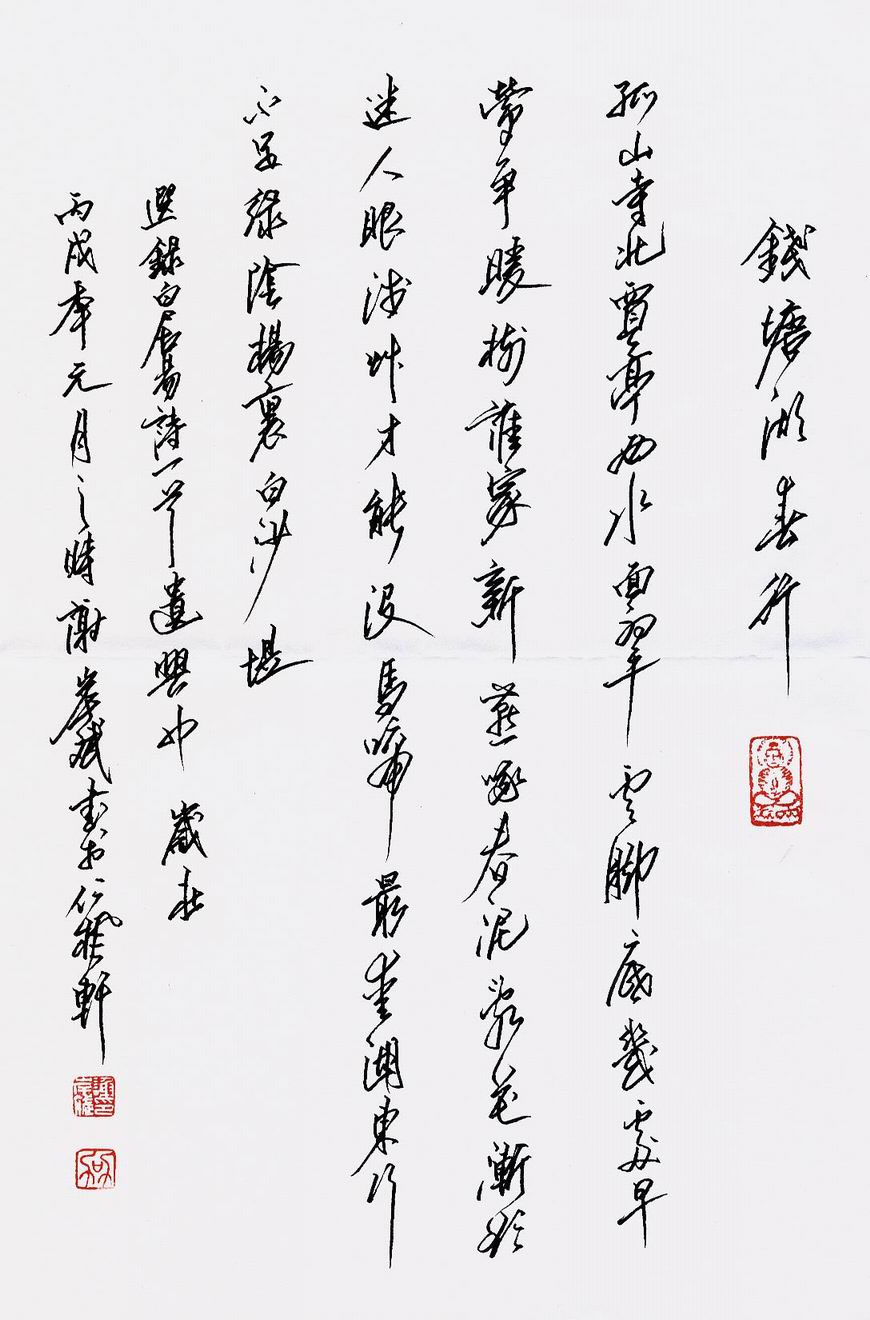 錢塘湖春行
孤山寺北賈亭西水面初平雲腳底幾處早
鶯爭暖樹誰家新燕啄春泥亂花漸欲
迷人眼淺艸才能沒馬啼最愛湖東行
不足綠陰楊裏白沙堤
選錄白居易詩一首遣興也歲在
丙戌年元月之時謝書於仁軒